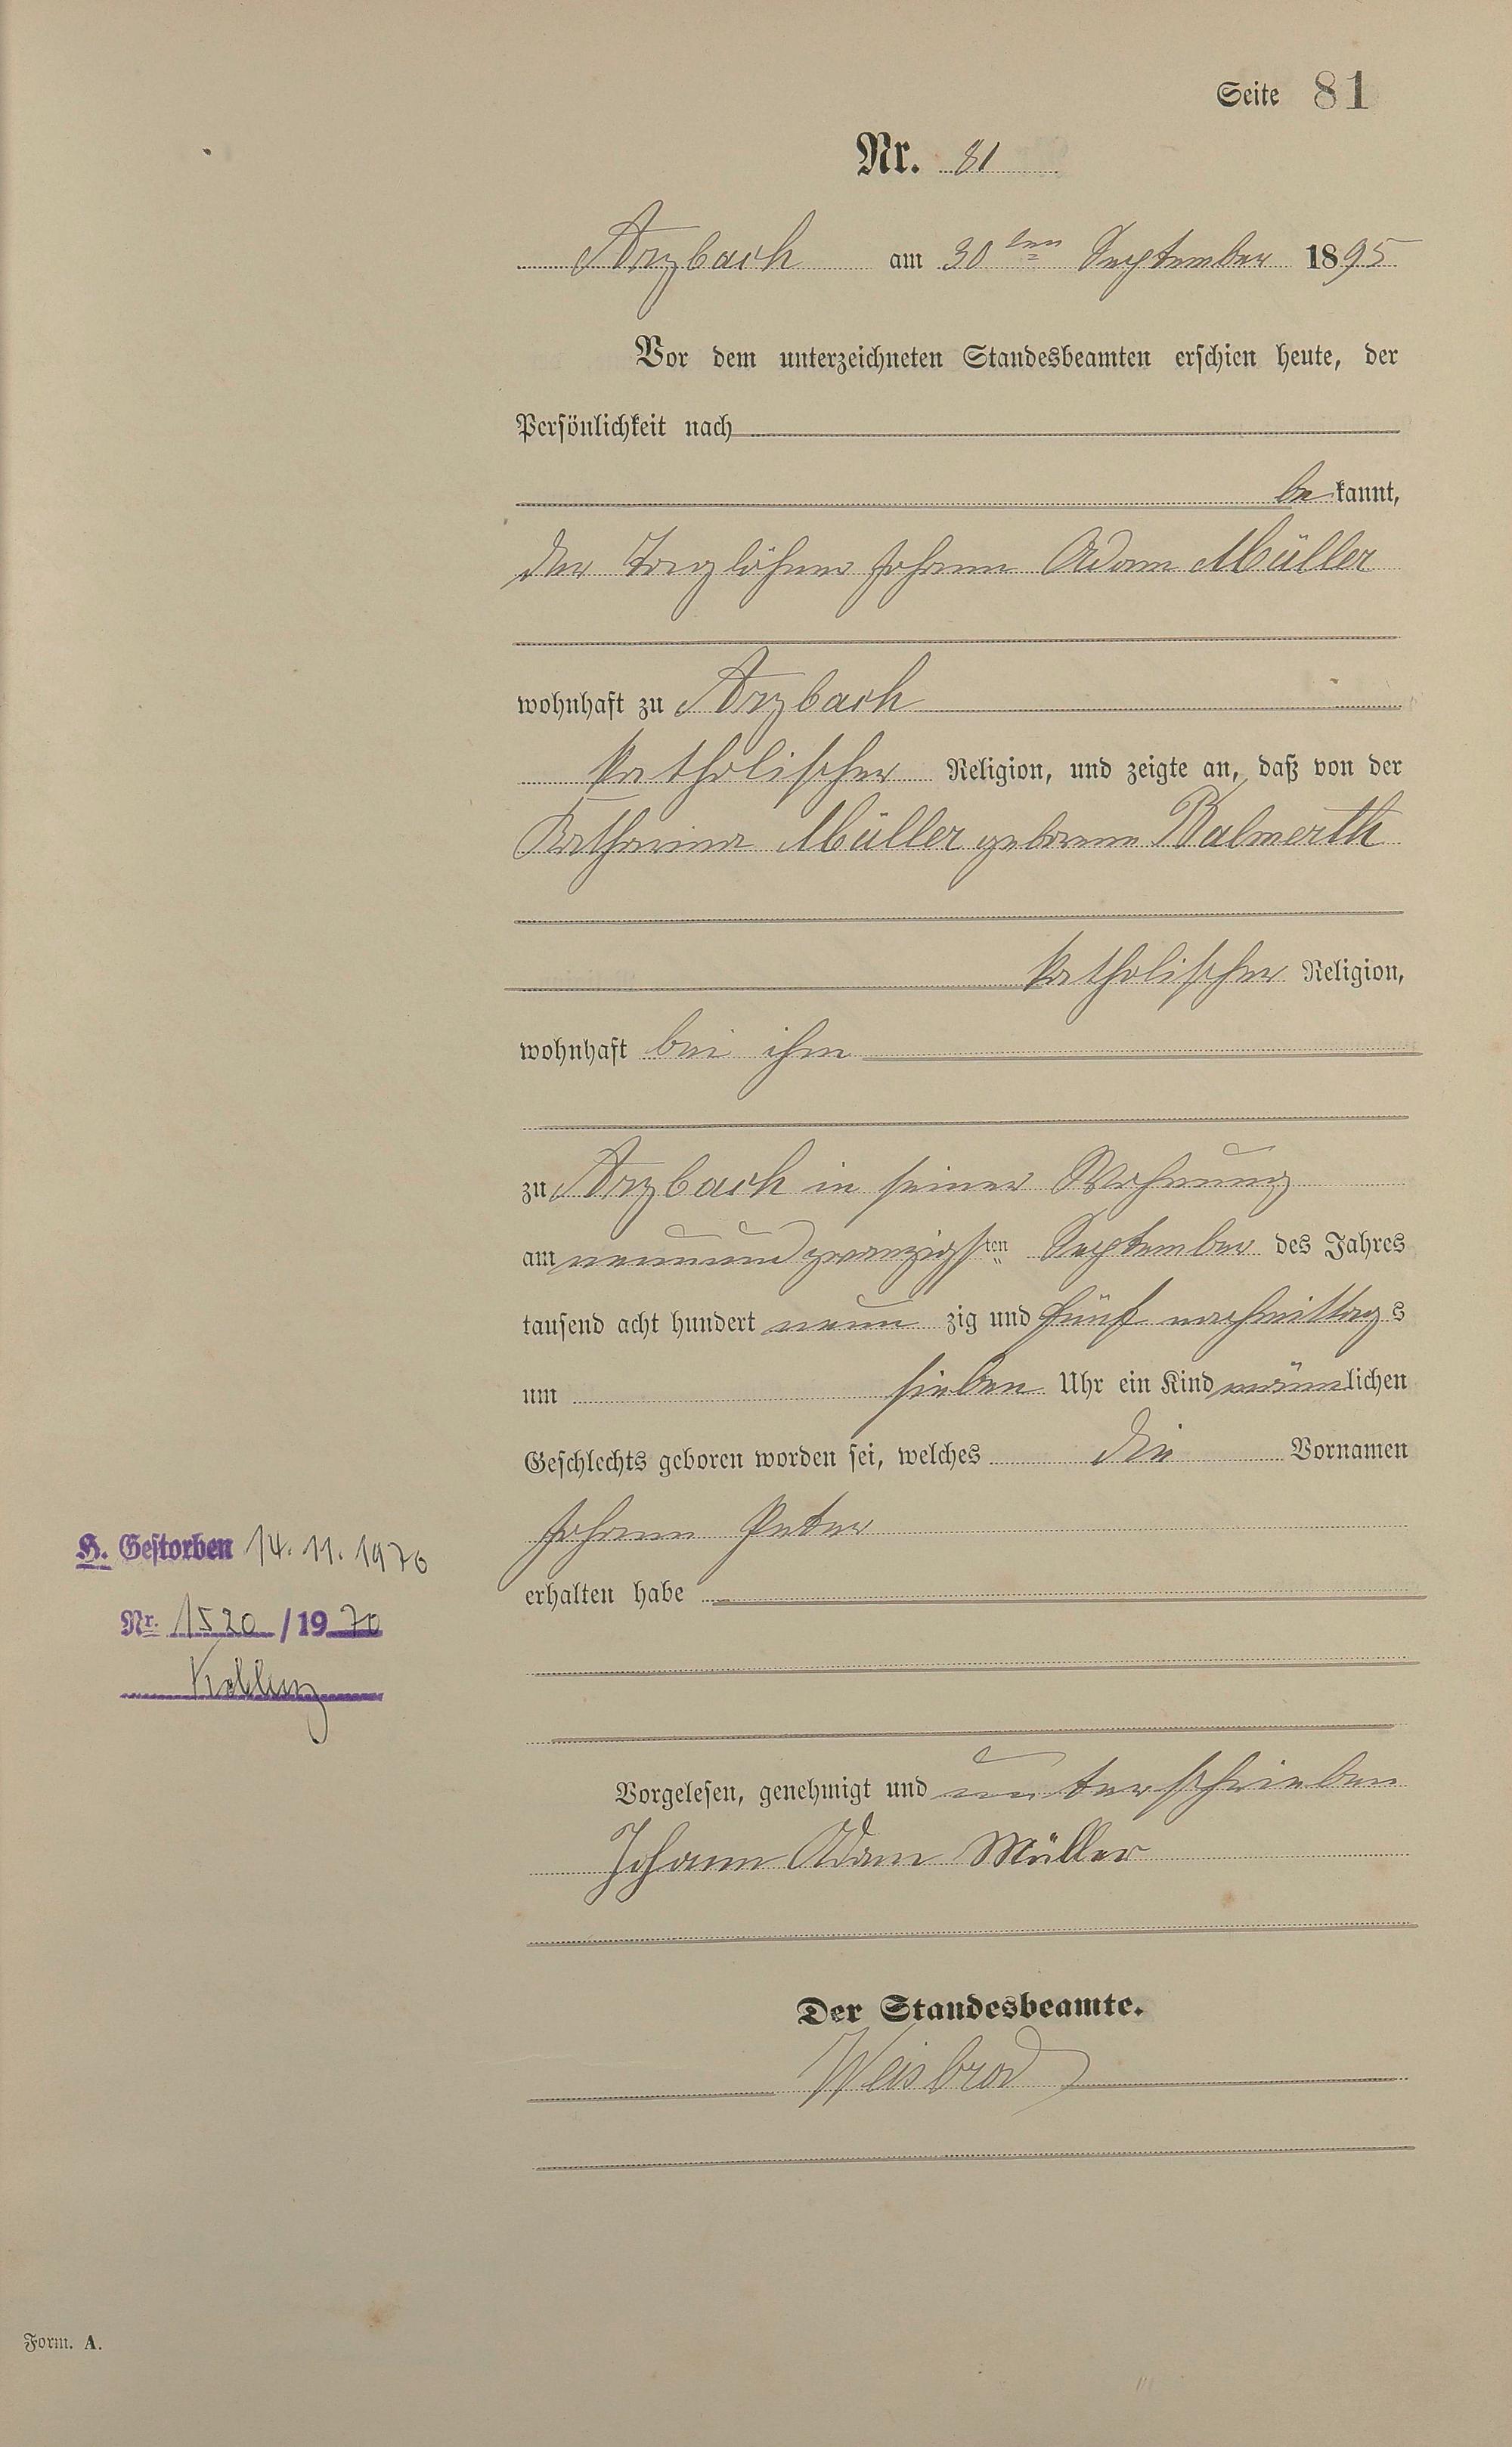 Seite 81
Nr. 81
Arzbach am 30ten September 1895
Vor dem unterzeichneten Standesbeamten erschien heute, der
Persönlichkeit nach
bekannt,
der Taglöhner Johann Adam Müller
wohnhaft zu Arzbach
katholischer Religion, und zeigte an, daß von der
Katharina Müller geborene Balmerth
katholischer Religion,
wohnhaft bei ihm
zu Arzbach in seiner Wohnung
am neunundzwanzigsten September des Jahres
tausend acht hundert neun zig und fünf nachmittags
um sieben Uhr ein Kind männlichen
Geschlechts geboren worden sei, welches die Vornamen
Johann Peter
H. Gestorben 14.11.1970
erhalten habe
Nr. 1520 / 1970
Koblenz
Vorgelesen, genehmigt und unterschrieben
Johann Adam Müller
Der Standesbeamte.
Weisbrod
Form. A.